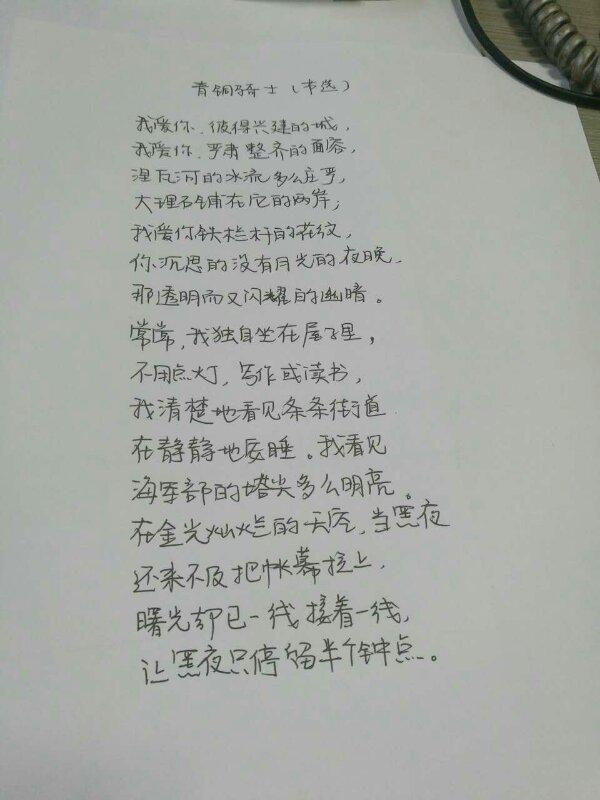 青铜骑士（节选）
我爱你，彼得兴建的城，
我爱你，严肃整齐的面容，
涅瓦河的水流多么庄严，
大理石铺在它的两岸；
我爱你铁栏杆的花纹，
你沉思的没有月光的夜晚，
那透明而又闪耀的幽暗。
常常，我独自坐在屋子里，
不用点灯，写作或读书，
我清楚地看见条条街道
在静静地安睡。我看见
海军部的塔尖多么明亮。
在金光灿烂的天空，当黑夜
还来不及把帐幕拉上，
曙光却已一线接着一线，
让黑夜只停留半个钟点。